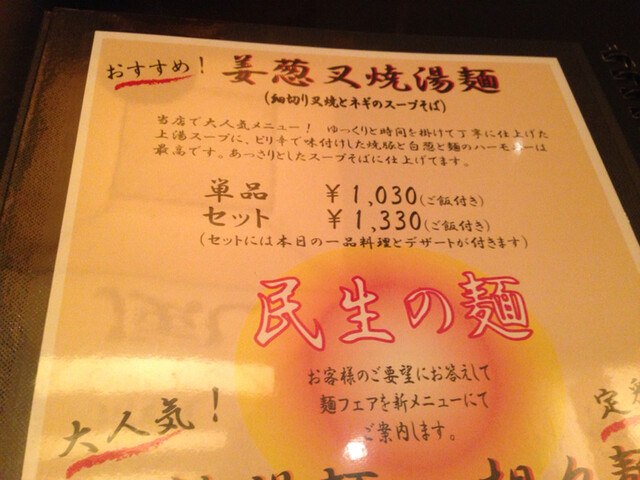 おすすめ！ 姜葱叉焼湯麺
(細切り叉焼とネギのスープそば)
当店で大人気メニュー！ ゆっくりと時間を掛けて丁寧に仕上げた
上湯スープに、ピリ辛で味付けした焼豚と白葱と麺のハーモニーは
最高です。あっさりとしたスープそばに仕上げてます。
単品 ￥1,030(ご飯付き)
セット ￥1,330(ご飯付き)
(セットには本日の一品料理とデザートが付きます)
民生の麺
お客様のご要望にお答えして
麺フェアを新メニューにて
ご案内します。
大人気！